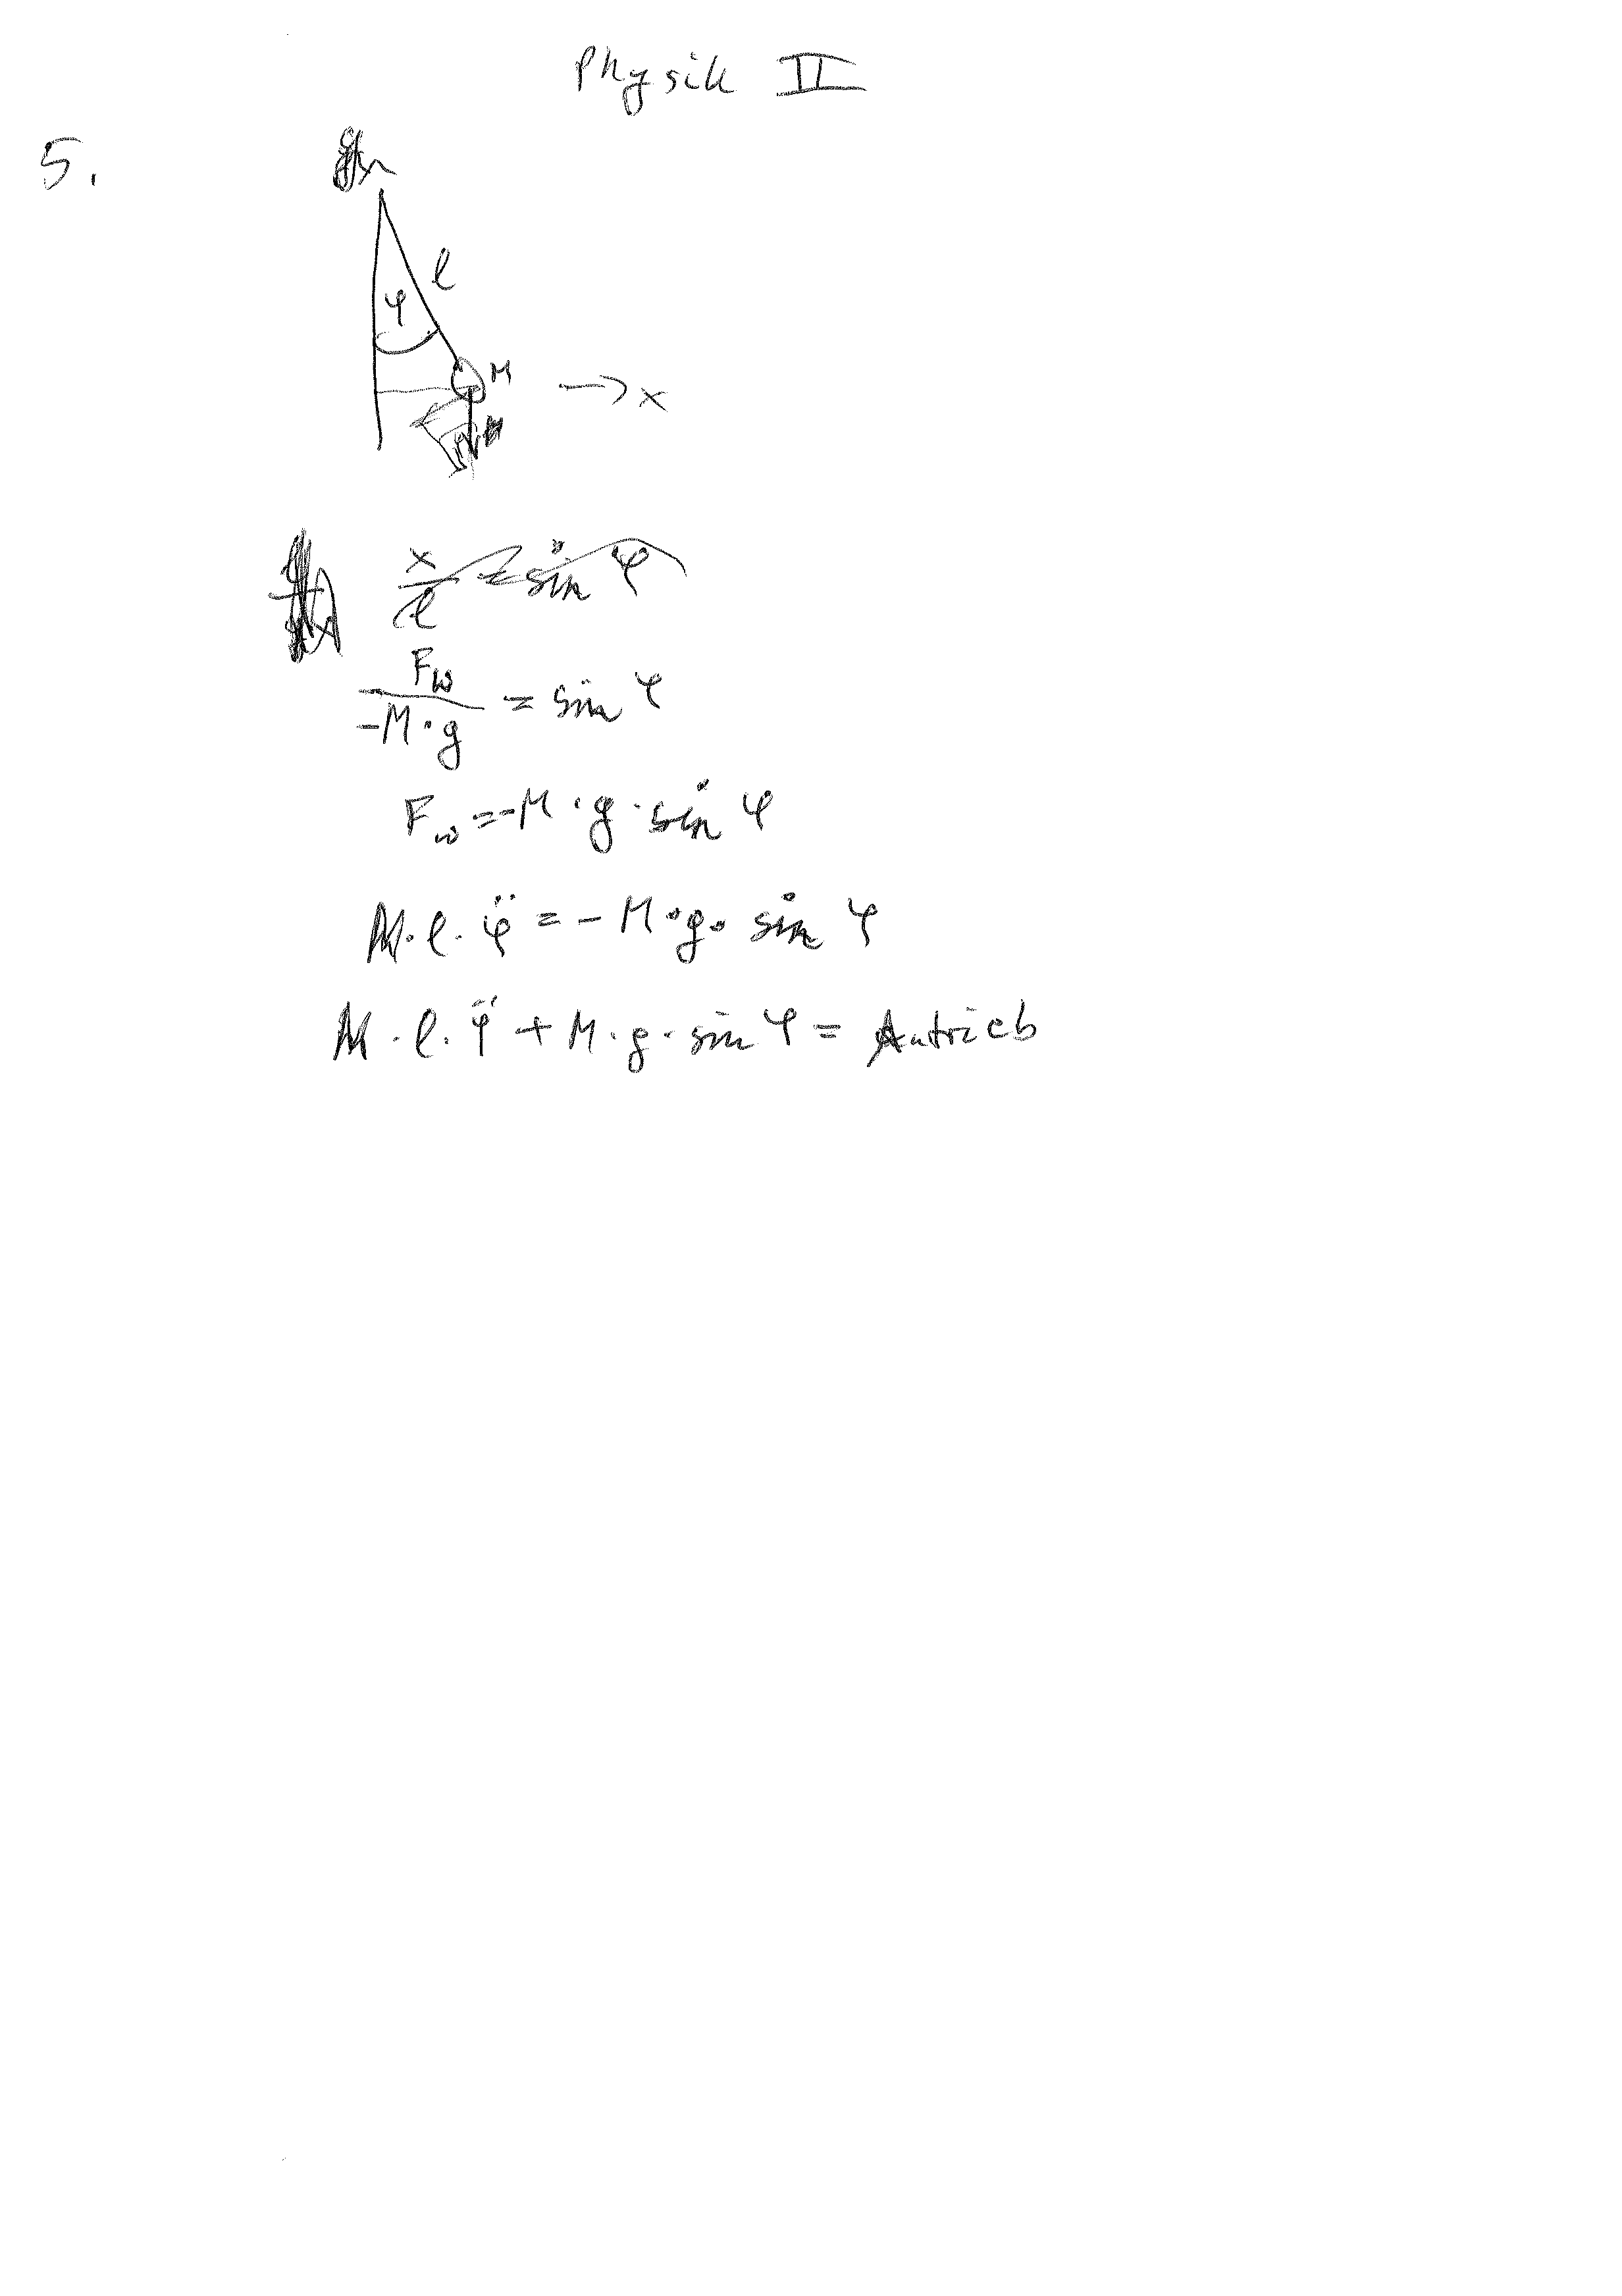 Physik II
5.
φ
l
M
→ x
x/l = sin φ
F_w / -M·g = sin φ
F_w = -M·g·sin φ
M·l·φ̈ = -M·g·sin φ
M·l·φ̈ + M·g·sin φ = Antrieb